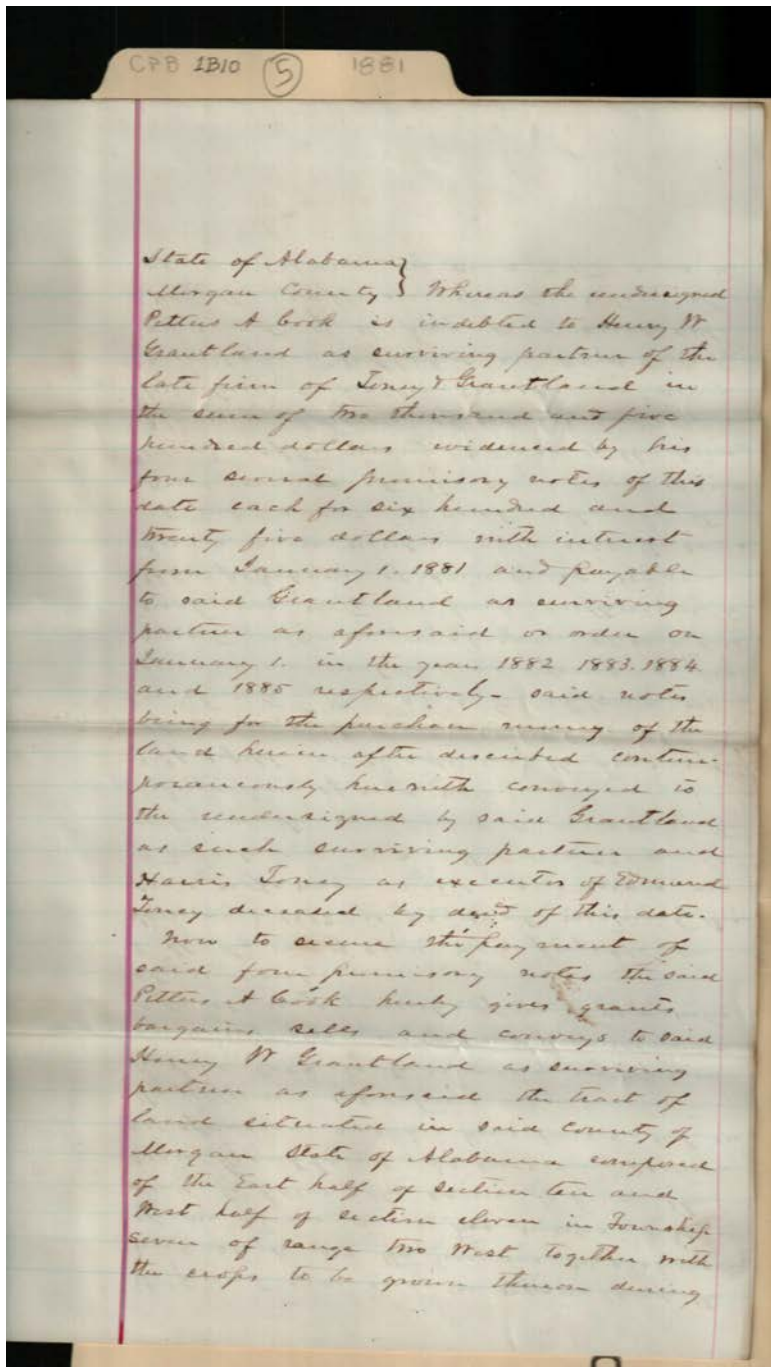 CPB 1B10 5 1881
State of Alabama }
Morgan County } Whereas the undersigned
A Cook is indebted to Henry W
Grantland as surviving partner of the
late firm of Toney & Grantland in
the sum of two thousand and five
hundred dollars evidenced by his
four several promisory notes of this
date each for six hundred and
twenty five dollars with interest
from January 1. 1881 and payable
to said Grantland as surviving
partner as aforesaid or order on
January 1. in the year 1882 1883. 1884.
and 1885 respectively - said notes
being for the purchase money of the
land herein after described contem-
poraneously herewith conveyed to
the undersigned by said Grantland
as such surviving partner and
Harris Toney as executor of Edmund
Toney deceased by deed of this date.
Now to secure the payment of
said four promisory notes the said
A Cook hereby gives grants
bargains sells and conveys to said
Henry W Grantland as surviving
partner as aforesaid the tract of
land situated in said County of
Morgan State of Alabama composed
of the East half of section ten and
West half of section eleven in Township
seven of range two West together with
the crops to be grown thereon during